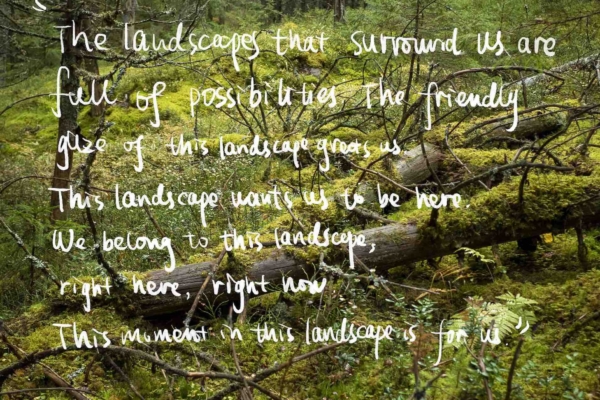 “The landscapes that surround us are
full of possibilities The friendly
gaze of this landscape greets us.
This landscape wants us to be here.
We belong to this landscape,
right here, right now
This moment in this landscape is for us.”